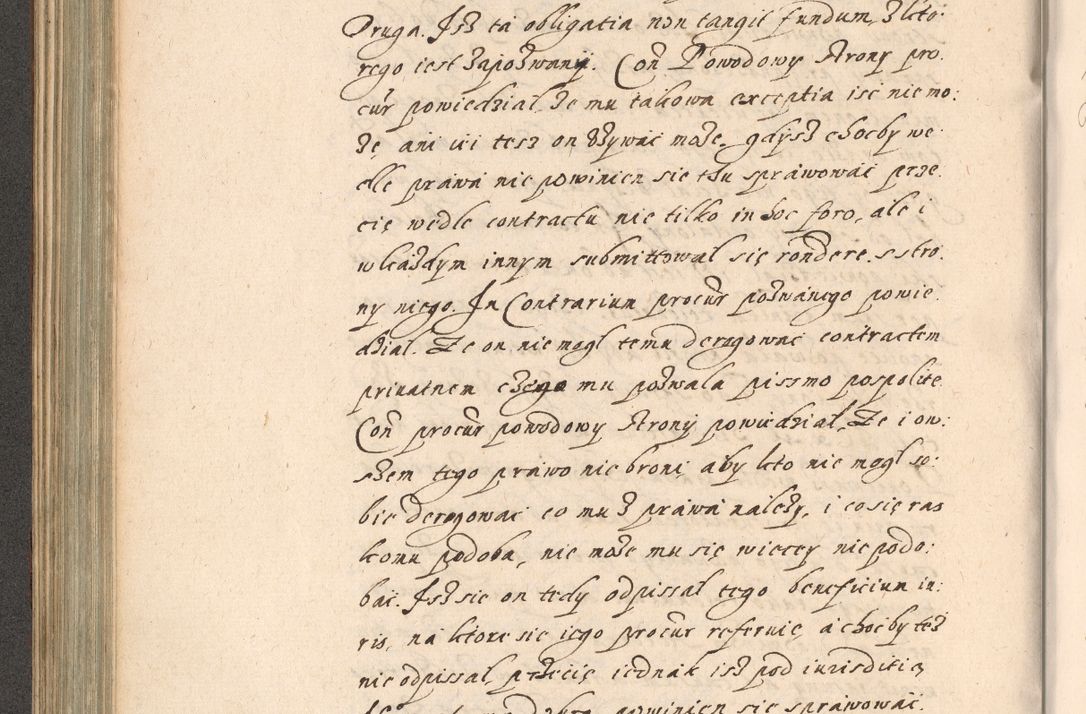 Druga. Jsz ta obligatia non tangit fundum, z kto:
rego iest zapozwany. Con Powodowy strony pro:
cur powiedział. Że mu takowa exceptia isc nie mo:
że, ani iei tesz on używać może, gdysz choćby we:
dle prawa nie powinien się tku sprawować prze:
cię wedle contractu nie tilko in hoc foro, ale i
w każdym innym submittował się rondere, s stro:
ny niego. In Contrarium procur pozwanego powie:
dział. Że on nie mogł temu derogować contractem
priuatnem czego mu pozwala pismo pospolite.
Con procur powodowy strony powiedział, Że i ow:
szem tego prawo nie broni, aby kto nie mogł so:
bie derogować co mu z prawa należy, i co się raz
komu podoba, nie może mu się wiecey nie podo:
bać. Jsz sie on tedy odpissał tego beneficium iu:
ris, na ktore sie iego procur referuie, a choćby też
nie odpissał, przecię iednak isz pod iurisditią
powinien się sprawować.